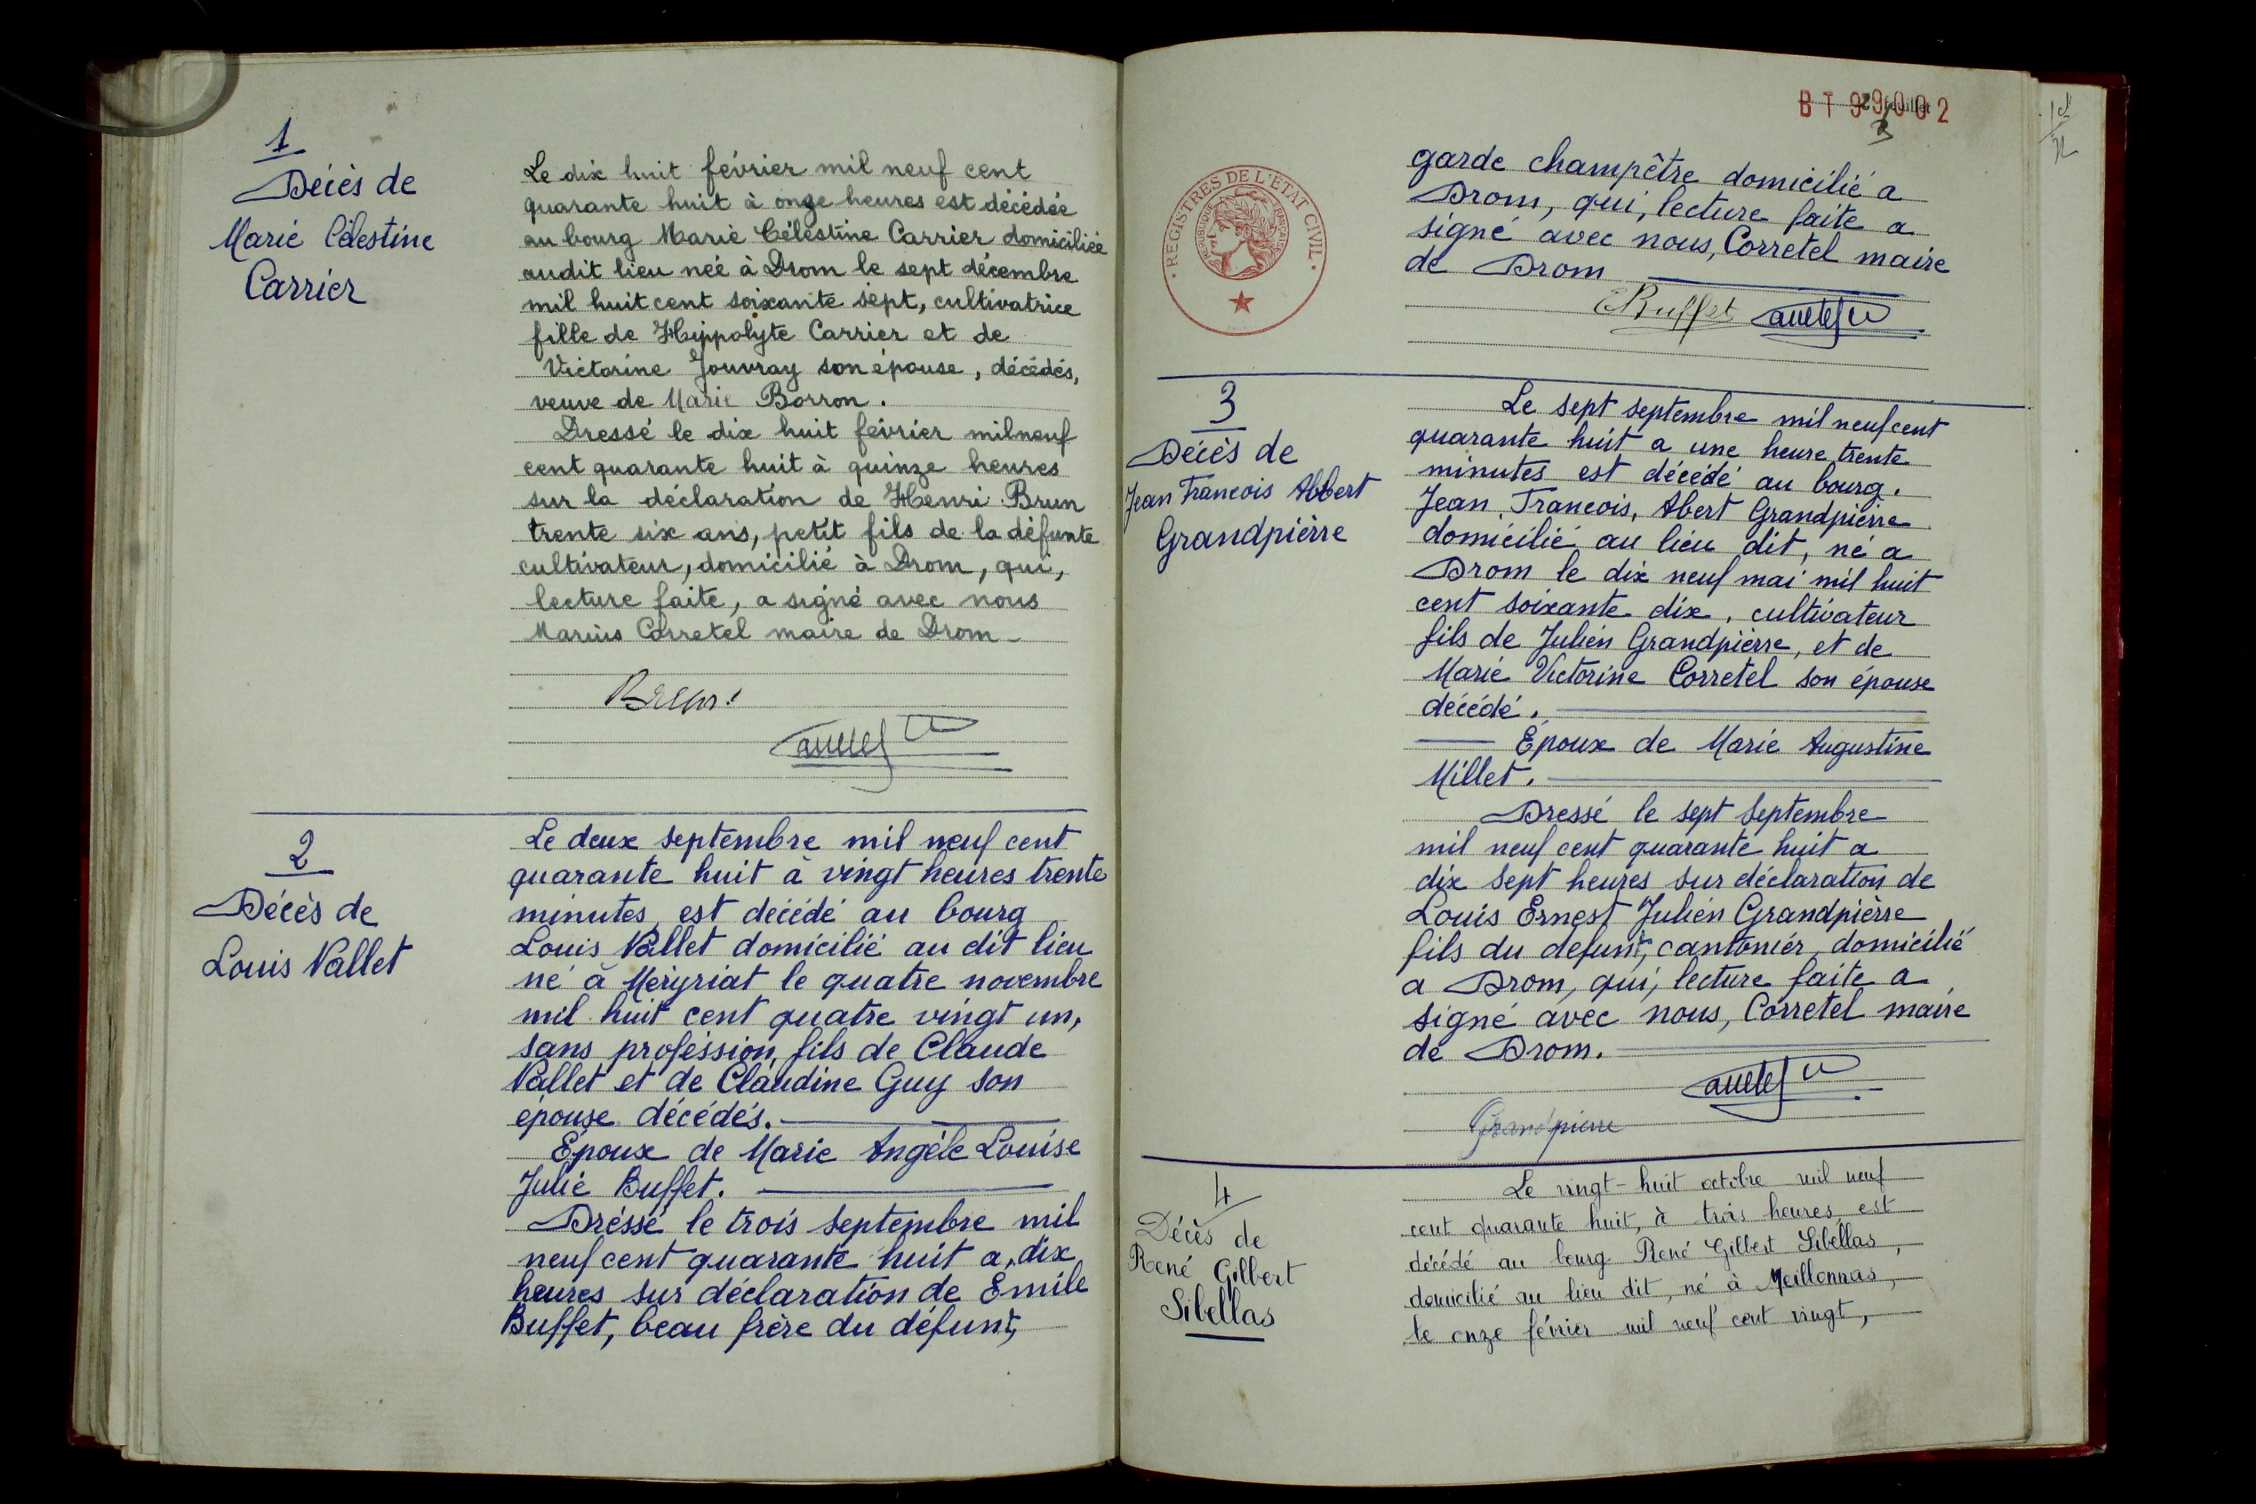 1
Décès de
Marie Célestine
Carrier
Le dix huit février mil neuf cent
quarante huit à onze heures est décédée
au bourg Marie Célestine Carrier domiciliée
audit lieu née à Drom le sept décembre
mil huit cent soixante sept, cultivatrice
fille de Hippolyte Carrier et de
Victorine Jouvray son épouse, décédés,
veuve de Marie Borron.
Dressé le dix huit février mil neuf
cent quarante huit à quinze heures
sur la déclaration de Henri Brun
trente six ans, petit fils de la défunte
cultivateur, domicilié à Drom, qui,
lecture faite, a signé avec nous
Marius Corretel maire de Drom
Brun
2
Décès de
Louis Vallet
Le deux septembre mil neuf cent
quarante huit à vingt heures trente
minutes, est décédé au bourg
Louis Vallet domicilié au dit lieu
né à Meyriat le quatre novembre
mil huit cent quatre vingt un,
sans profession, fils de Claude
Vallet et de Claudine Guy son
épouse décédés.
Epoux de Marie Angèle Louise
Julie Buffet.
Dréssé le trois septembre mil
neuf cent quarante huit a, dix
heures sur déclaration de Emile
Buffet, beau frère du défunt,
BT 99002
feuillet
3
garde champêtre domicilié a
Drom, qui, lecture faite a
signé avec nous, Corretel maire
de Drom
EBuffet
REGISTRES DE L'ÉTAT CIVIL
RÉPUBLIQUE FRANÇAISE
3
Décès de
Jean Francois Abbert
Grandpierre
Le sept septembre mil neuf cent
quarante huit a une heure trente
minutes est décédé au bourg.
Jean, Francois, Abert Grandpierre
domicilié au lieu dit, né a
Drom le dix neuf mai mil huit
cent soixante dix, cultivateur
fils de Julien Grandpierre, et de
Marie Victorine Corretel son épouse
décédé.
Epoux de Marie Augustine
Millet.
Dressé le sept septembre
mil neuf cent quarante huit a
dix sept heures sur déclaration de
Louis Ernest Julien Grandpierre
fils du defunt, cantonier, domicilié
a Drom, qui, lecture faite a
signé avec nous, Corretel maire
de Drom.
Grandpierre
4
Décès de
René Gilbert
Sibellas
Le vingt-huit octobre mil neuf
cent quarante huit, à trois heures, est
décédé au bourg René Gilbert Sibellas,
domicilié au lieu dit, né à Meillonnas,
le onze février mil neuf cent vingt,